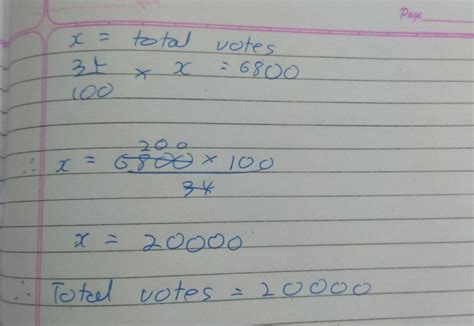 Page
x = total votes
34/100 × x = 6800
∴ x = 6800 × 100 / 34
200
x = 20000
∴ Total votes = 20000